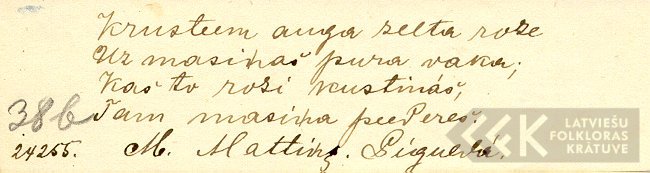 Krusteem auga zelta rože
Uz masiņaš pura vaka;
Kaš to roži kustinaš,
Tam masiņa peedereš.
38b
24255. M. Mattiņš. Siguldā.
LATVIEŠU
FOLKLORAS
KRĀTUVE